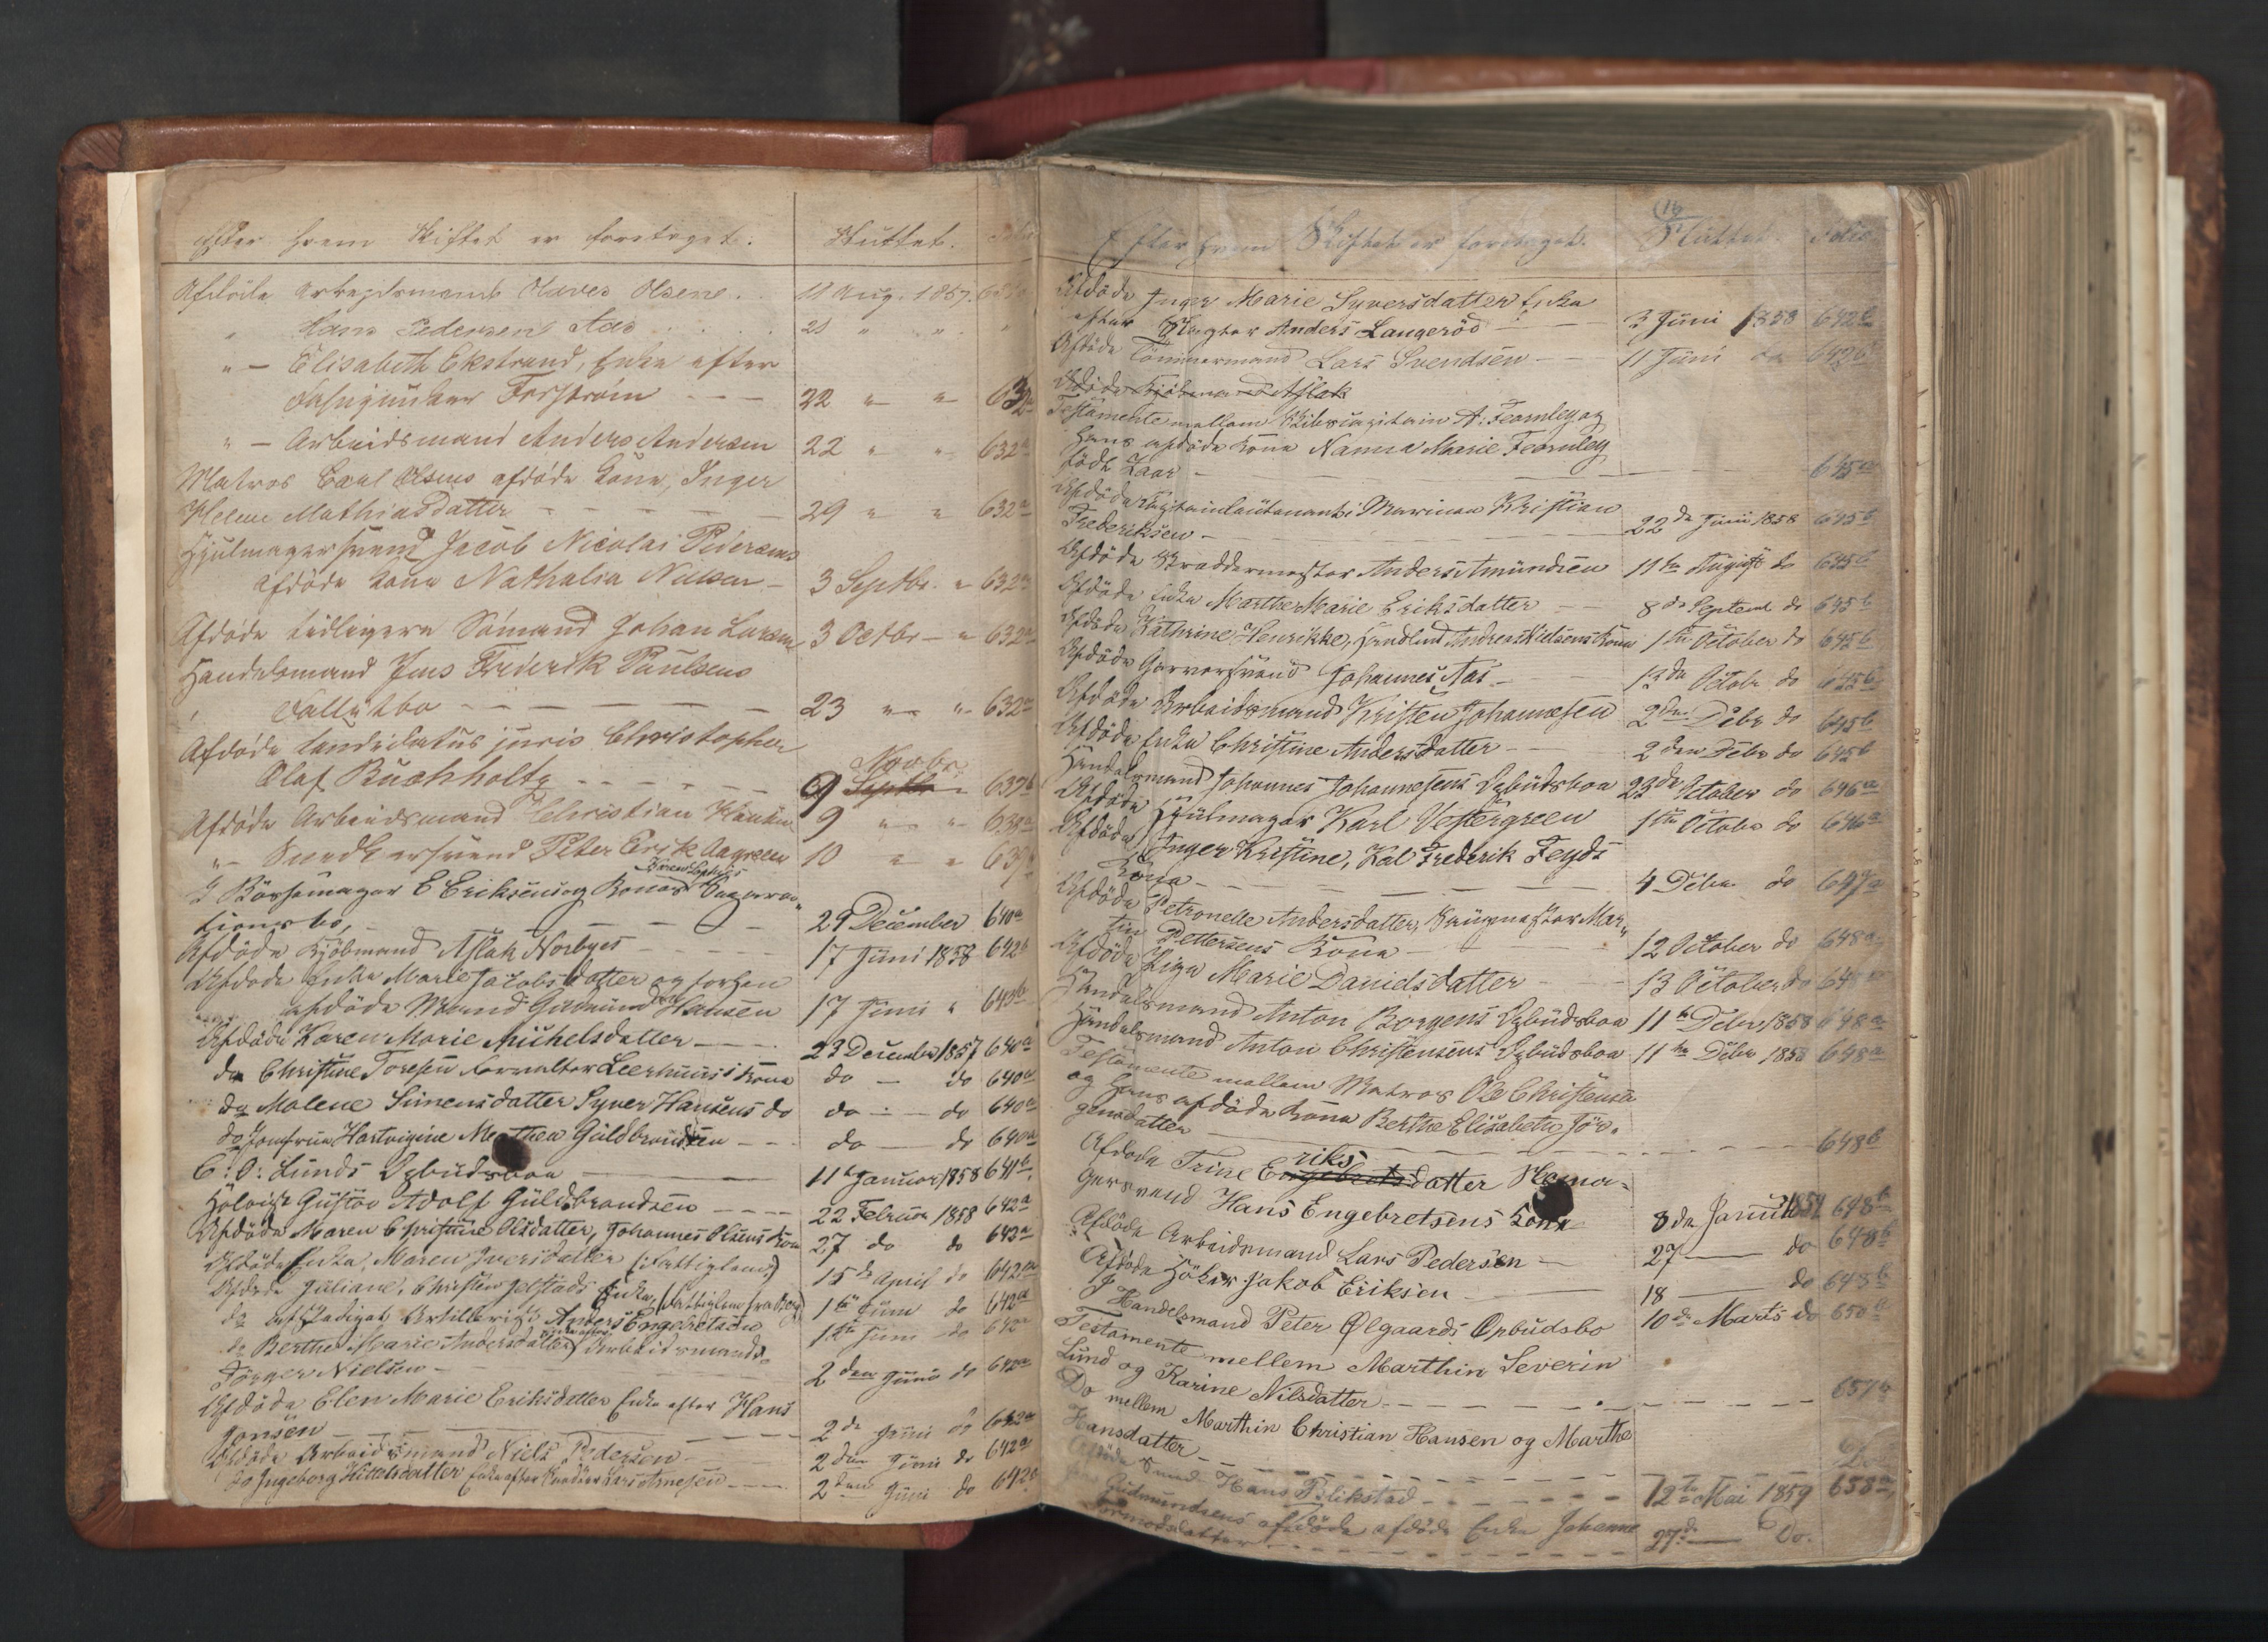 Efter hvem Skiftet er foretaget. Sluttet.
Afdöde Arbeidsmand Olaves Olsens 11 Aug. 1857.
" Hans Pedersen Aas 21 " " "
" – Elisabeth Ekstrand, Enke efter
Forström – – – 22 " " 632a
" – Arbeidsmand Anders Andersen 22 " " 632a
Matros Carl Olsens afdöde Kone, Inger
Helene Mathiasdatter – – – – 29 " " 632a
Hjulmagersvend Jacob Nicolai Pedersens
afdöde Kone Nathalia Nielsen – 3 Septbr. " 632a
Afdöde tidligere Sömand Johan Larsen 3 Octbr – " 632a
Handelsmand Jens Frederik Paulsens
Fallitbo – – – – – – 23 " " 632a
Afdöde Candidatus juris Christopher
Novbr.
Olaf Buchholtz – – – – – 9 Septbr " 639b
Afdöde Arbeidsmand Christian Hansen 9 " " 639a
" – Smedkersvend Peter Erik Aagreen 10 " " 639a
G Börsemager E Eriksen og Kones
tionsbo, – – – – – 29 December 640a
Afdöde Kjöbmand Aslak Norbyes – – – 17 Juni 1858 642b
Afdöde Enke Marie Jacobsdatter og forhen
afdöde Mand Gudmund Hansen 17 Juni " 643b
Afdöde Karen Marie Michelsdatter – – . 23 December 1857 640a
do Christine Toresen Forvalter Leerhuus's Kone do – do 640a
do Malene Simensdatter Syver Hansens do do – – do 640a
do Jomfrue Hartvigine Mathea Guldbrandsen – – – do – do 640a
C: O: Lunds Opbudsboe 11te Januar 1858 641b
Gustav Adolf Guldbrandsen – – – – 22 Februar 1858 642a
Afdöde Maren Christine Olsdatter, Johannes Olsens Kone 27 do do 643a
Afdöde Enke, Maren Iversdatter (: Fattiglem) 15de April do 642a
Afdöde Juliane, Christen Jelstads Enke, (Fattiglem fra Berg) 1ste Juni do 642a
do afskediget Artillerist Anders Engebretsen 1ste Juni do 642a
do Berthe Marie Andersdatter Arbeidsmand
Jörger Nielsen – – – 2den Juni do 642a
Afdöde Elen Marie Eriksdatter Enke efter Hans
Jonsen – – – – – – 2de Juni do 642a
Afdöde Arbeidsmand Niels Pedersen – 2den Juni do 642a
do Ingeborg Kittelsdatter Enke efter Lars Arnesen – – – 2den Juni do 642b
16
Efter hvem Skiftet er foretaget. Sluttet. Folio
Afdöde Inger Marie Syversdatter Enke
efter Slagter Anders Langeröd – 3 Juni 1858 642b
Afdöde Tömmermand Lars Svendsen – – 11 Juni do 642b
Afdöde Kjöbmand Aslak
Testamente mellem Skibscapitain A: Fearnley og
Hans afdöde Kone Nanna Marie Fearnley
födt Zaar – – – – 645a
Afdöde Capitainlieutenant i Marinen Kristian
Frederiksen – 22de Juni 1858 645b
Afdöde Skræddermester Anders Amundsen 11te August do 645b
Afdöde Enke Marthe Marie Eriksdatter – – 8de Septemb do 645b
Afdöde Kathrine Henrikke, Andreas Nielsens Kone 1ste October do 645b
Afdöde Garversvend Johannes Aas – 13de Octobr do 645b
Afdöde Arbeidsmand Kristen Johannesen 2den Debr do 645b
Afdöde Enke Christine Andersdatter – 2den Debr do 645b
Handelsmand Johannes Johannesens Opbudsboe 23de October do 646a
Afdöde Hjulmager Karl Vestergreen 1ste Octobr do 646a
Afdöde Inger Kristine, Kal Frederik Feyds
Kone – – – – – 4 Debr do 647a
Afdöde Petronelle Andersdatter, Mar-
tin Pettersens Kone – – – 12 October do 648a
Afdöde Marie Danielsdatter – – 13 October do 648a
Handelsmand Anton Borgens Opbudsboe 11te Debr 1858 648a
Handelsmand Anton Christensens Opbudsboe 11te Debr 1858 648a
Testamente mellem Matros Ole Christensen
og Hans afdöde Kone Berthe Elisabeth Jör-
gensdatter – – – 648b
riks
Afdöde Trine Engebretsdatter
gersvend Hans Engebretsens Kone 8de Januar 1859 648b
Afdöde Arbeidsmand Lars Pedersen – 27 – do 648b
Afdöde Höker Jakob Eriksen – 18 – do 648b
I Handelsmand Peter Ølgaards Opbudsbo 10de Marts do 650a
Testamente mellem Marthin Severin
Lund og Karine Nilsdatter – – – – – – 657a
Do mellem Marthin Christian Hansen og Marthe
Hansdatter – – – – – – Do
Afdöde Smed Hans Blikstad – – – – – 12te Mai 1859 658a
Gudmundsens afdöde afdöde Enke Johanne
Tormodsdatter – – – – 27de – Do.